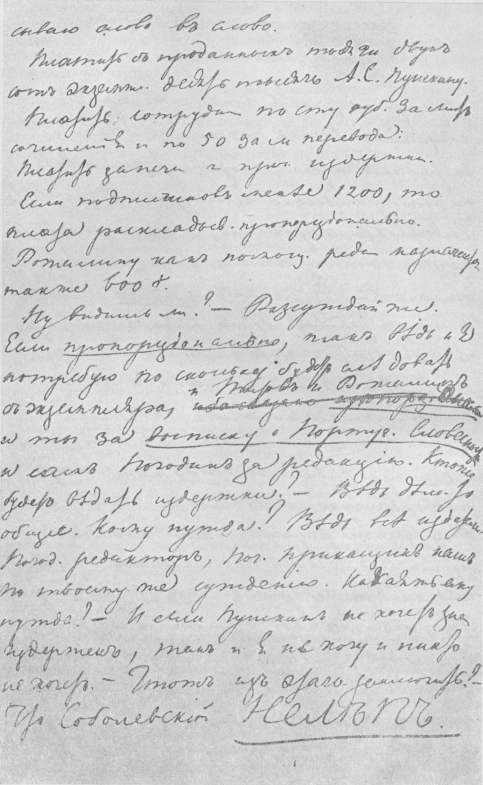 сываю слово въ слово.
Платить съ проданныхъ тысячи двухъ
сотъ экземп. десять тысячь А.С. Пушкину.
Платить сотрудн. по сту руб. за листъ
сочиненія и по 50 за л. перевода.
Платить за печ. и проч. издержки.
Если подписчиковъ менѣе 1200, то
плата расклад. пропорціонально.
Рожалину какъ помощ. ред. назначается
также 600 р.
Ну видишь ли? — Разсуждай же.
Если пропорціонально, такъ вѣдь и я
потребую по скольку будетъ слѣдовать
съ экземпляра, и Титовъ и Рожалинъ
и ты за выписку о Португ. Словесности
и самъ Погодинъ за редакцію. Кто же
будетъ вѣдать издержки? — Вѣдь дѣло
общее. Кому нужда? Вѣдь всѣ издатели.
Погод. редакторъ, Пог. прикащикъ нашъ
по твоему же сужденію. Какая ему
нужда? — И если Пушкинъ не хочетъ знать
издержекъ, такъ и я не хочу и никто
не хочетъ. — Чтожъ изъ этаго заключить? —
Что Соболевскій Нелѣпъ.